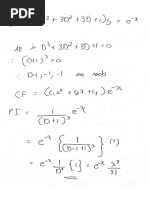 (D³+3D²+3D+1)y = e⁻ˣ
AE is D³+3D²+3D+1=0
∴ (D+1)³ = 0
∴ D=-1,-1,-1 are roots
CF = (c₁x²+c₂x+c₃)e⁻ˣ
PI = 1/(D+1)³ e⁻ˣ
= e⁻ˣ {1/(D-1+1)³} (1)
= e⁻ˣ 1/D³ {1} = e⁻ˣ x³/3!